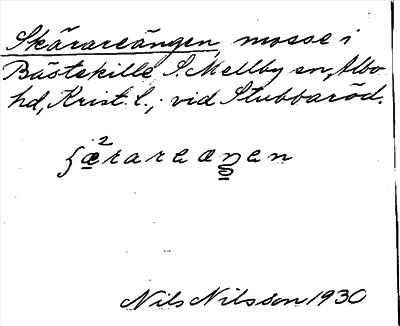 Skärareängen, mosse i
Bästekille, S. Mellby sn, Albo
hd, Krist. l., vid Stubbaröd.
Nils Nilsson 1930